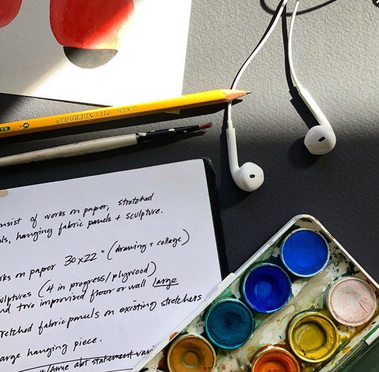 DIXON TICONDEROGA
nsist of works on paper, stretched
ls, hanging fabric panels + sculpture.
rks on paper 30x22" (drawing + collage)
ulptures (4 in progress/plywood)
nd two improvised floor or wall large
retched fabric panels on existing stretchers
arge hanging piece.
abt statement